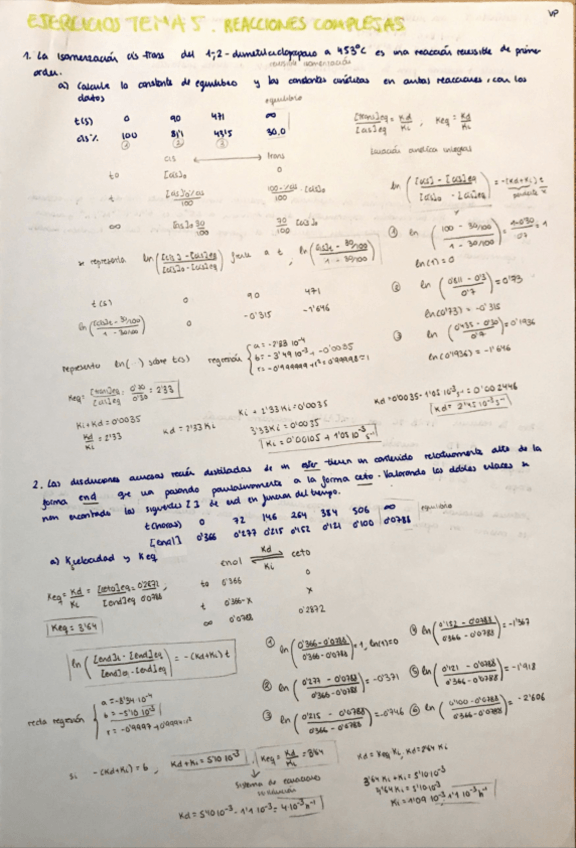 EJERCICIOS TEMA 5. REACCIONES COMPLEJAS
VP
1. La isomerización cis-trans del 1,2-dimetilciclopropano a 453°C es una reacción reversible de primer
orden.
reversible isomerización
a) Calcule la constante de equilibrio y las constantes cinéticas en ambas reacciones, con los
datos
equilibrio
t(s) 0 90 471 ∞
cis% 100 81'1 43'5 30.0
① ② ③
[trans]eq/[cis]eq = Kd/Ki , Keq = Kd/Ki
Ecuación cinética integrada
cis ⟷ trans
t0 [cis]0 0
t [cis]0 %cis/100 100-%cis/100 [cis]0
∞ [cis]0 30/100 70/100 [cis]0
ln ([cis]-[cis]eq/[cis]0-[cis]eq) = -(Kd+Ki) t
① ln (100-30/100 / 1-30/100) = 1-0'30/0'7 = 1
ln(1)=0
* represento ln([cis]-[cis]eq/[cis]0-[cis]eq) frente a t, ln([cis]-30/100 / 1-30/100)
② ln (0'811-0'3/0'7) = 0'73
ln(0'73) = -0'315
t(s) 0 90 471
ln([cis]-30/100 / 1-30/100) 0 -0'315 -1'646
③ ln (0'435-0'30/0'7) = 0'1936
ln(0'1936) = -1'646
represento ln(..) sobre t(s) regresión
b = -3'49·10⁻³ ≈ -0'0035
r = -0'999999
Keq = [trans]eq/[cis]eq = 0'70/0'30 = 2'33
Ki+Kd=0'0035
Kd/Ki = 2'33
Kd = 2'33 Ki
Ki + 2'33Ki = 0'0035
3'33Ki = 0'0035
Ki = 0'00105 = 1'05·10⁻³ s⁻¹
Kd = 0'0035 - 1'05·10⁻³ = 0'002446
Kd = 2'45·10⁻³ s⁻¹
2. Las disoluciones acuosas recién destiladas de un ester tienen un contenido relativamente alto de la
forma enol que va pasando paulatinamente a la forma ceto. Valorando los dobles enlaces se
han encontrado las siguientes [ ] de enol en función del tiempo.
t(horas) 0 72 146 264 384 506 ∞ equilibrio
[enol] 0'366 0'277 0'215 0'152 0'121 0'100 0'0788
a) Kvelocidad y Keq
enol ⇌ ceto
Kd
Ki
t0 0'366 0
t 0'366-x x
∞ 0'0788 0'2872
Keq = Kd/Ki = [ceto]eq/[enol]eq = 0'2871/0'0788
Keq = 3'64
ln ([enol]t - [enol]eq/[enol]0 - [enol]eq) = -(Kd+Ki) t
① ln (0'366-0'0788/0'366-0'0788) = 1, ln(1)=0
② ln (0'277-0'0788/0'366-0'0788) = -0'371
③ ln (0'215-0'0788/0'366-0'0788) = -0'746
④ ln (0'152-0'0788/0'366-0'0788) = -1'367
⑤ ln (0'121-0'0788/0'366-0'0788) = -1'918
⑥ ln (0'100-0'0788/0'366-0'0788) = -2'606
recta regresión
a = -8'34·10⁻⁴
b = -5'10·10⁻³
r = -0'9997
si -(Kd+Ki) = b, Kd+Ki = 5'10·10⁻³, Keq = Kd/Ki = 3'64
Sistema de ecuaciones
Kd = Keq·Ki, Kd = 3'64 Ki
3'64Ki + Ki = 5'10·10⁻³
4'64Ki = 5'10·10⁻³
Ki = 1'09·10⁻³ = 1'1·10⁻³ h⁻¹
Kd = 5'10·10⁻³ - 1'1·10⁻³ = 4·10⁻³ h⁻¹